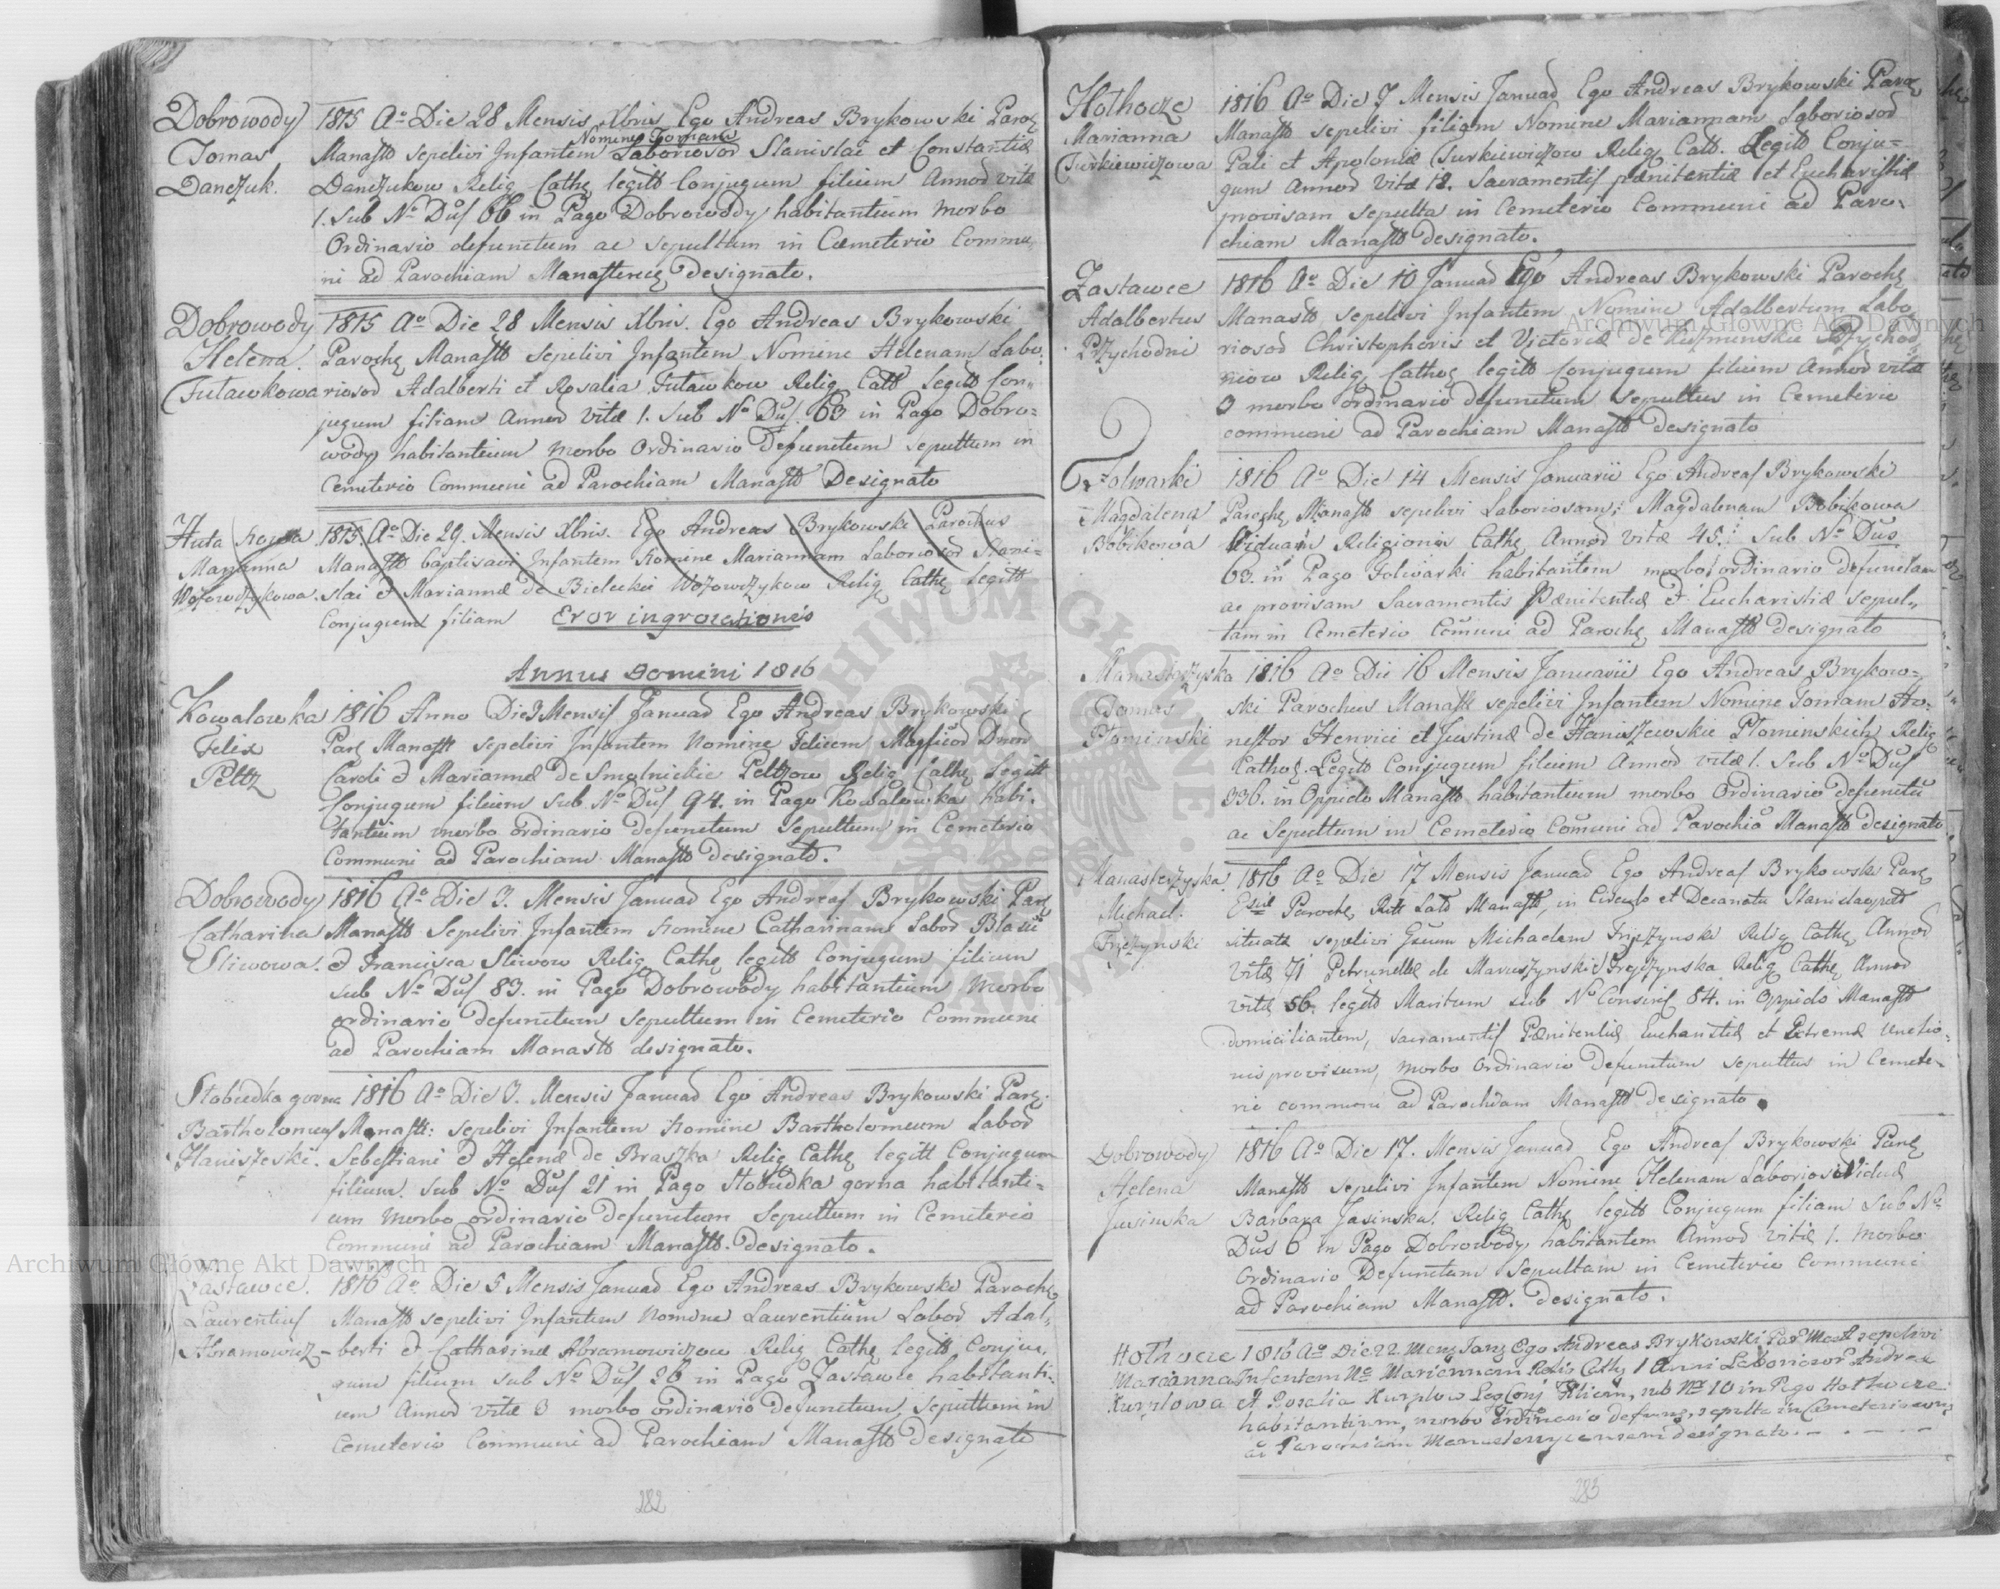 Dobrowody
Tomas
Danczuk.
1815 Ao Die 28 Mensis Xbris Ego Andreas Brykowski Paroc
Nomine Tomam
Manastt sepelivi Infantem Laboriosor Stanislai et Constantiæ
Danczukow Relig Cathc legitt Conjugum filium Annor vitæ
1. Sub No Dus 66 in Pago Dobrowody habitantium morbo
Ordinario defunctum ac sepultum in Cœmeterio Commu,
ni ad Parochiam Manasterc designato.
Dobrowody
Helena
Tutawkowa
1815 Ao Die 28 Mensis Xbris. Ego Andreas Brykowski
Parochc Manastt sepelivi Infantem Nomine Helenam Labo,
riosod Adalberti et Rosalia Tutawkow Relig Catt Legitt Con,,
jugum filiam Annod vitæ 1. Sub No Dus. 63 in Pago Dobro=
wody habitantium Morbo Ordinario Defunctum sepultum in
Cemeterio Communi ad Parochiam Manastt Designato
Huta Nowa
Marianna
Wozowczykowa
1815. Ao Die 29. Mensis Xbris. Ego Andreas Brykowski Parochus
Manastt baptisavi Infantem Nomine Mariannam Laboriosod Stani=
slai et Mariannæ de Bielecki Wozowczykow Relig Cathc Legitt
Conjugum filiam Eror ingrocationes
Annus Domini 1816
Kowalowka
Felix
Peltz
1816 Anno Die 3 Mensis Januad Ego Andreas Brykowski
Parc Manastt sepelivi Infantem nomine Felicem Magficod Dnod
Caroli et Mariannæ de Smolnickie Peltzow Relig Cathc Legitt
Conjugum filium sub No Dus 94. in Pago Kowalowka habi.
tantium morbo ordinario defunctum sepultum in Cemeterio
Communi ad Parochiam Manastt designato.
Dobrowody
Catharina
Sliwowa.
1816 Ao Die 3. Mensis Januad Ego Andreas Brykowski Parc
Manastt Sepelivi Infantem Nomine Catharinam Labod Blasii
et Francisca Sliwow Relig Cathc legitt Conjugum filium
sub No Dus 83. in Pago Dobrowody habitantium Morbo
ordinario defunctum sepultum in Cemeterio Communi
ad Parochiam Manastt designato.
Slobudka gorna
Bartholomeus
Haniszeski.
1816 Ao Die 3. Mensis Januad Ego Andreas Brykowski Parc.
Manastt: sepelivi Infantem Nomine Bartholomeum Labod
Sebestiani et Helenæ de Braszka Relig Cathc legitt Conjugum
filium. sub No Dus 21 in Pago Slobudka gorna habitanti=
um Morbo ordinario defunctum sepultum in Cemeterio
Communi ad Parochiam Manastt. designato.
Zastawce.
Laurentius
Abramowicz
1816 Ao Die 5 Mensis Januad Ego Andreas Brykowski Parochc
Manastt sepelivi Infantem nomine Laurentium Labod Adal,,
berti et Catharinæ Abramowiczow Relig Cathc legitt Conju,
gum filium sub No Dus 26 in Pago Zastawce habitanti.
um Annod vitæ 3 morbo ordinario defunctum sepultum in
Cemeterio Communi ad Parochiam Manastt designato
282
Hothocze
Marianna
Turkiewiczowa
1816 Ao Die 7 Mensis Januad Ego Andreas Brykowski Paroc
Manastt sepelivi filiam Nomine Mariannam Laboriosod
Pali et Apoloniæ Turkiewiczow Relig Catt. Legitt Conju=
gum Annod vitæ 18. Sacramentis pœnitentiæ et Eucharistiæ
provisam sepulta in Cemeterio Communi ad Paro,
chiam Manastt designato.
Zastawce
Adalbertus
Przychodni
1816 Ao Die 10 Januad Ego Andreas Brykowski Parochc
Manastt sepelivi Infantem Nomine Adalbertum Labo,
riosod Christophoris et Victoriæ de Kuzminskie Przychod,
niow Relig Cathoc legitt Conjugum filium Annod vitæ
3 morbo ordinario defunctum sepultus in Cemeterio
communi ad Parochiam Manastt designato
Folwarki
Magdalena
Bobikowa
1816 Ao Die 14 Mensis Januarii Ego Andreas Brykowski
Parochc Manastt sepelivi Laboriosam: Magdalenam Bobikowa
Viduam Religionis Cathc Annod vitæ 45. Sub No Dus
63. in Pago Folwarki habitantem morbo ordinario defunctam
ac provisam Sacramentis Pœnitentiæ et Eucharistiæ sepul,,
tam in Cemeterio Cõmuni ad Parochc Manastt designato
Manasterzyska
Tomas
Plominski
1816 Ao Die 16 Mensis Januarii Ego Andreas Brykow=
ski Parochus Manastt sepelivi Infantem Nomine Tomam Ho,
nestor Henrici et Justinæ de Haniszewskie Plominskich Relig
Cathoc. Legitt Conjugum filium Annod vitæ 1. Sub No Dus
336. in Oppido Manastt habitantium morbo Ordinario defunctũ
ac Sepultum in Cemeterio Cõmuni ad Parochiã Manastt designato
Manasterzyska
Michael.
Trzezynski
1816 Ao Die 17 Mensis Januad Ego Andreas Brykowski Parc
Parochc Ritt Latt Manastt, in Circulo et Decanatu
situatæ sepelivi Gsum Michaelem Trzezynski Relig Cathc Annod
vitæ 71 Petrunellæ de Maruszynskie Trzezynska Relig Cathc Annod
vitæ 56. legitt Maritum sub No Conscris 84. in Oppido Manastt
domiciliantem, sacramentis Pœnitentiæ Eucharistiæ et Extremæ Unctio=
nis provisum, Morbo Ordinario Defunctum sepultus in Cemete=
rio communi ad Parochiam Manastt designato.
Dobrowody
Helena
Jasinska
1816 Ao Die 17. Mensis Januad Ego Andreas Brykowski Parc
Manastt sepelivi Infantem Nomine Helenam Laboriosi Viduæ
Barbara Jasinska. Relig Cathc legitt Conjugum filiam Sub No
Dus 6 in Pago Dobrowody habitantem Annod vitæ 1. Morbo
Ordinario Defunctam sepultam in Cemeterio Communi
ad Parochiam Manastt. designato.
Hothocze
Marianna
Kurplowa
1816 Ao Die 22 Mens Janz Ego Andreas Brykowski Par Mast sepelivi
Infantem No Mariannam Relig Cathc 1 Anni Laboriosor Andreæ
et Rosalia Kurplow Leg Conj filiam, sub Nr 10 in Pago Hothocze
habitantium, morbo ordinario defunc, sepulta in Cemeterio
ad Parochiam Manasterzycensem designato.
283
Archiwum Główne Akt Dawnych
Archiwum Główne Akt Dawnych
ARCHIWUM GŁÓWNE AKT DAWNYCH